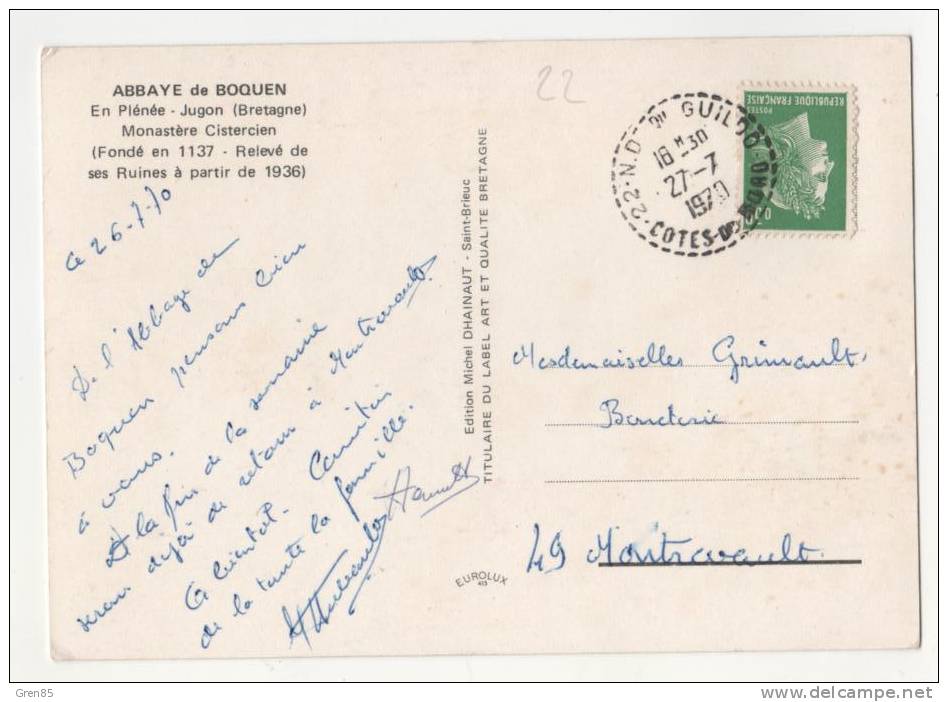 ABBAYE de BOQUEN
En Plénée - Jugon (Bretagne)
Monastère Cistercien
(Fondé en 1137 - Relevé de
ses Ruines à partir de 1936)
Ce 26-7-70
De l'Abbaye de
Boquen pensons bien
à vous.
A la fin de la semaine
serons déjà de retour à Montrevault.
A bientôt.
de la toute la famille.
Edition Michel DHAINAUT - Saint-Brieuc
TITULAIRE DU LABEL ART ET QUALITE BRETAGNE
EUROLUX
413
22
22-N.D DU GUILDO
18 H 30
27-7
1970
COTES-DU-NORD
POSTES
REPUBLIQUE FRANÇAISE
Mesdemoiselles Grimault
49 Montrevault
Gren85
www.delcampe.net